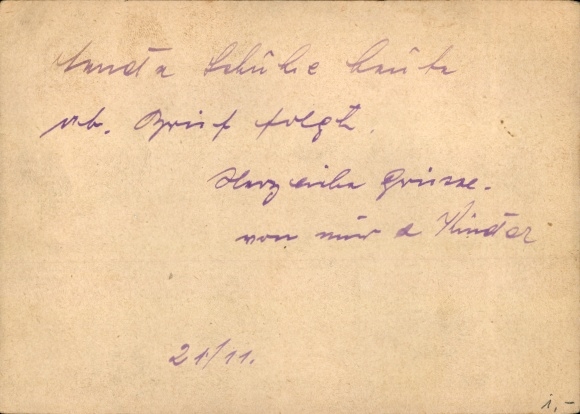 Sandte Schuhe heute
ab. Brief folgt.
Herzliche Grüsse.
von mir u Kinder
21/11.
1,-